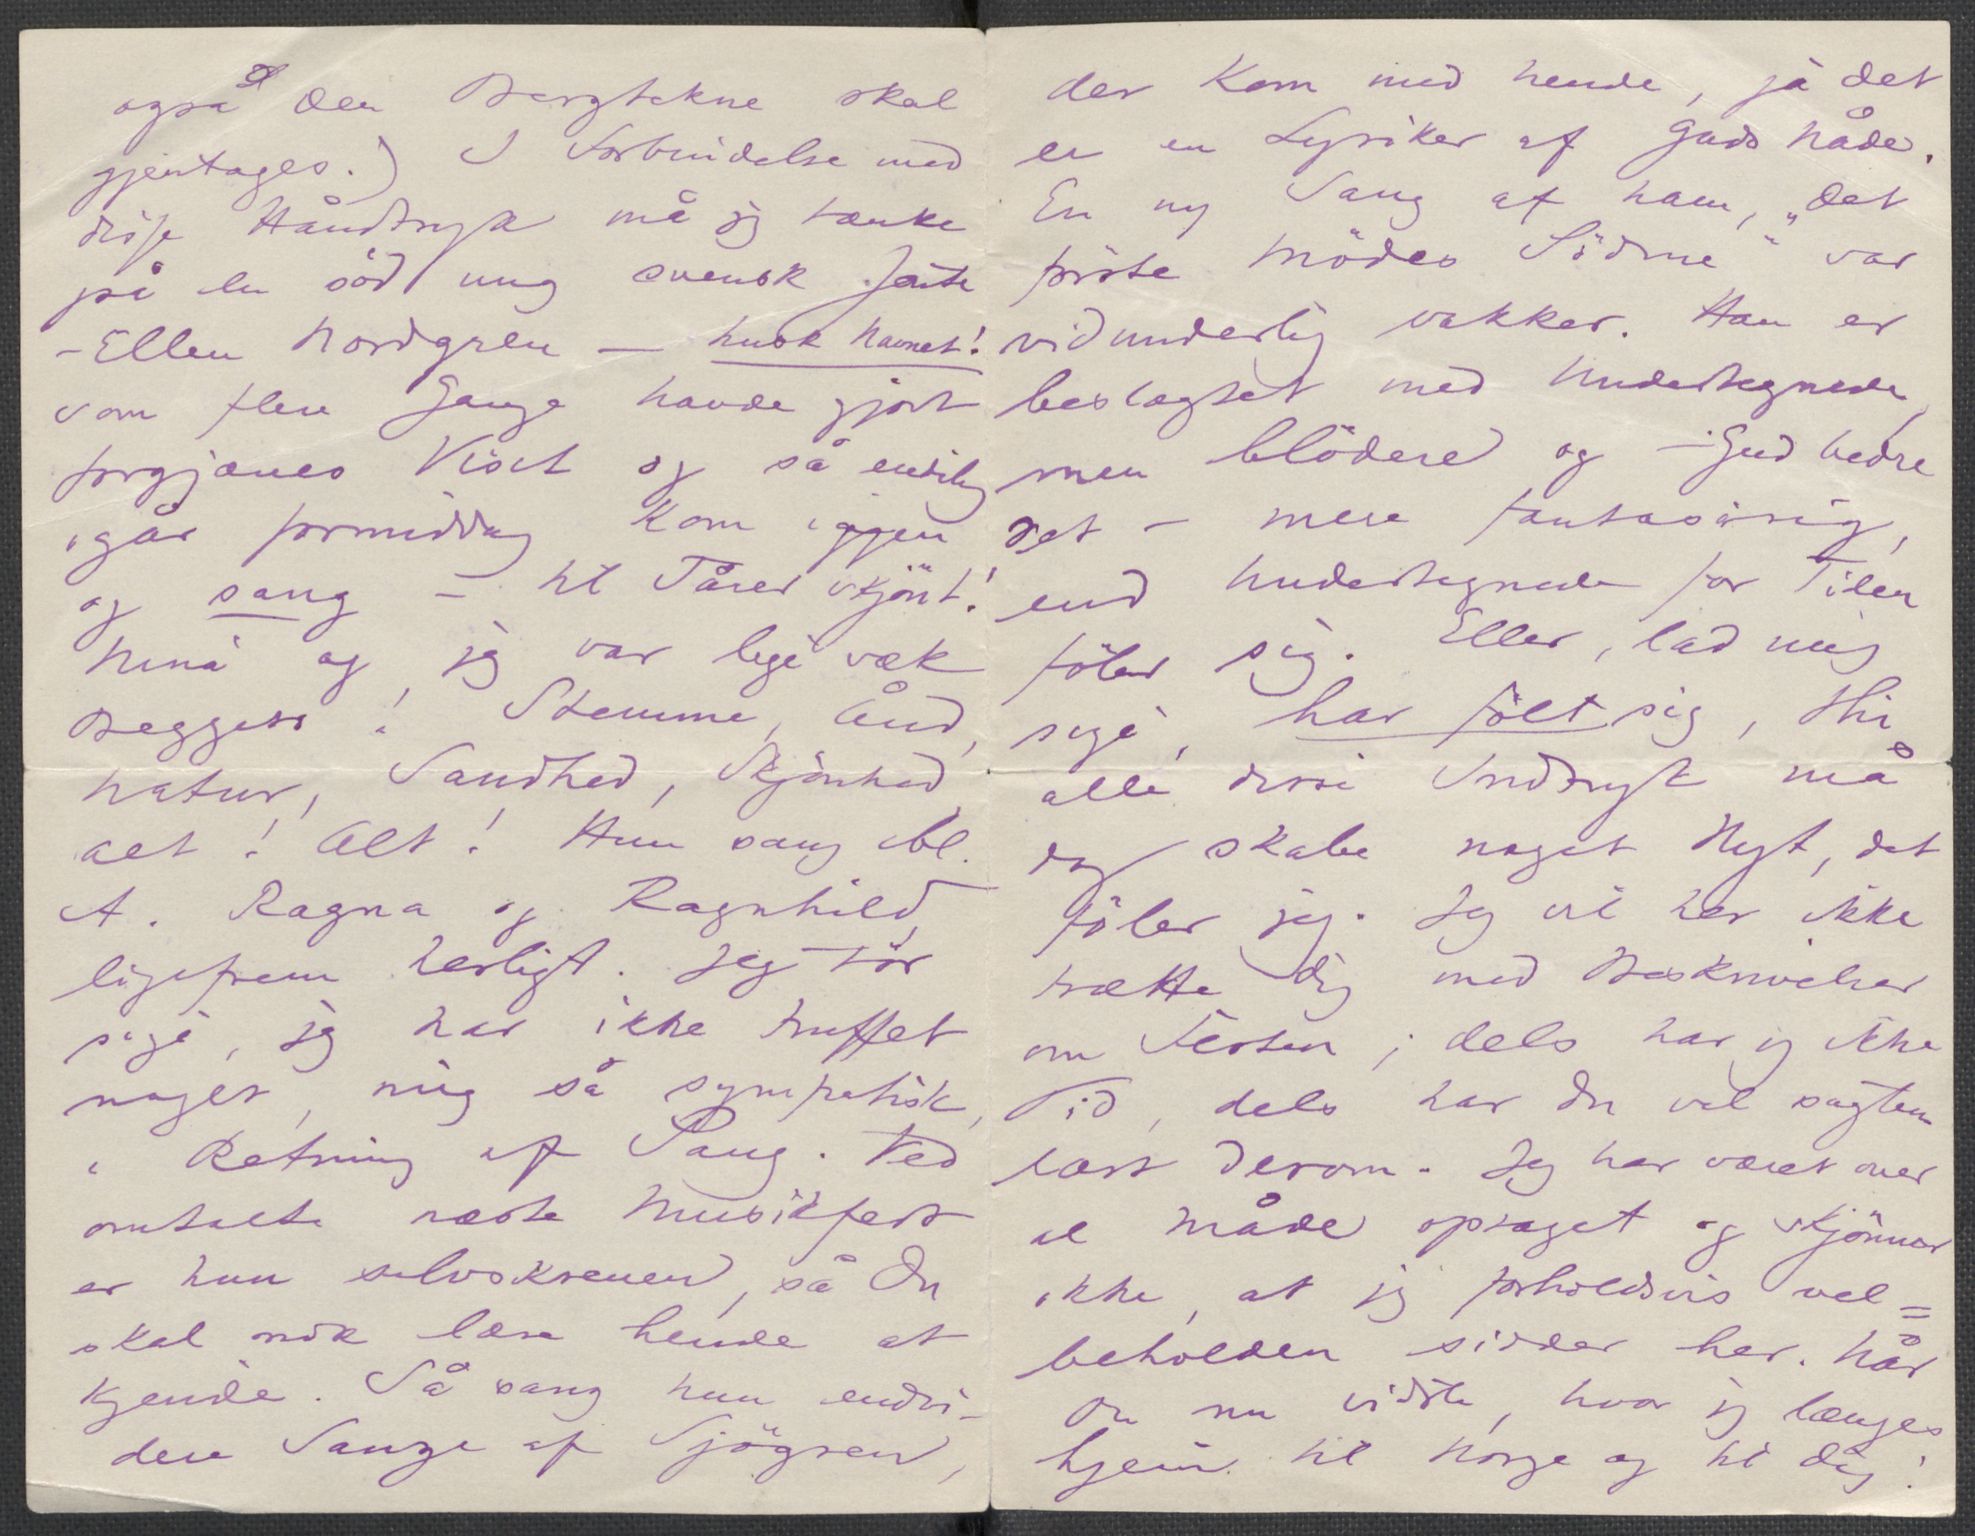 også den Bergtekne skal
gjentages.) I Forbindelse med
disse Håndtryk må jeg tænke
på en söd ung svensk Jänta
– Ellen Nordgren – husk Navnet!
som flere Gange havde gjort
forgjæves Visit og så endelig
igår formiddag kom igjen
og sang – til Tårer skjönt!
Nina og jeg var lige væk
Begge to! Stemme, Ånd,
Natur, Sandhed, Skjönhed,
alt! Alt! Hun sang bl.
A. Ragna og Ragnhild,
ligefrem herligt. Jeg tör
sige, jeg har ikke truffet
noget, mig så sympatisk,
i Retning af Sang. Ved
omtalte næste Musikfest
er hun selvskreven, så Du
skal nok lære hende at
kjende. Så sang hun endvi-
dere Sange af Sjögren,
der kom med hende, ja det
er en Lyriker af Guds Nåde.
En ny Sang af ham, „Det
förste Mödes Södme" var
vidunderlig vakker. Han er
beslægtet med Undertegnede,
men blödere og – Gud bedre
det – mere fantasirig,
end Undertegnede for Tiden
föler sig. Eller, lad mig
sige, har fölt sig, thi
alle disse Indtryk må
dog skabe noget Nyt, det
föler jeg. Jeg vil her ikke
trætte Dig med Beskrivelser
om Festen; dels har jeg ikke
Tid, dels har Du vel sagtens
læst derom. Jeg har været over
al Måde optaget og skjönner
ikke, at jeg forholdsvis vel=
beholden sidder her. Når
Du nu vidste, hvor jeg længes
hjem til Norge og til Dig!